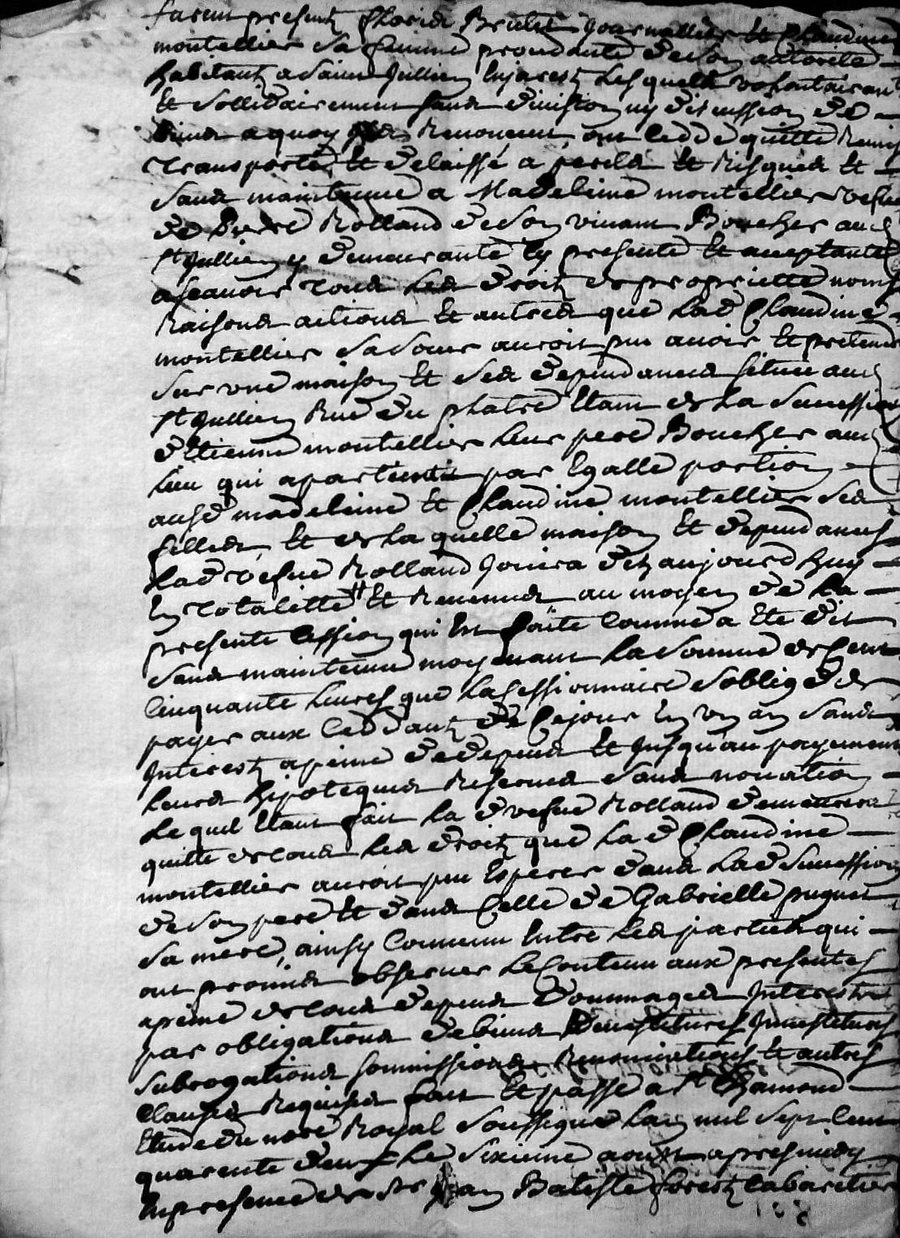 furent presentz Floris Brulet Journallier Et Claudine
montellier sa femme procedante de son autorité
habitantz a Saint Jullien Enjarest Lesquels volontairemt
Et Sollidairement sans division ny discussion de
biens a quoy ils Renoncent, ont cedde quitté Remis
Transporté Et delaissé a perils Et Risques Et
sans maintenue a Madeleine montellier vefve
de Pierre Rolland de son vivant Boucher aud
St Jullien y demeurante Icy presente Et acceptante
a scavoir tous Les droitz de propriette noms
Raisons actions Et autres que Lad Claudine
montellier sa soeur auroit pu avoir Et pretendre
sur une maison Et ses dependances située aud
St Jullien Rue du platre Etant de La Succession
d'Etienne montellier Leur pere Boucher aud
Lieu qui apartient par Egalle portion
ausd madeleine Et Claudine montellier ses
filles, Et de La quelle maison Et dependances
Lad vefve Rolland Jouira dez aujourd huy
En totalitté Et Revenus au moyen de La
presente Cession qui Est faite Comme a Eté dit
sans maintenue moyenant La Somme de Cent
Cinquante Livres que La Cessionnaire s'oblige de
payer aux Ceddantz de Cejour En un an Sans
Interestz apeine de depens Et Jusqu'au payement
Leurs hipoteques Reservés sans novation
Le quel Etant fait La d vefve Rolland demeurera
quitte de tous Les droitz que La d Claudine
montellier auroit pu Esperer dans La d Succession
de Son pere Et dans Celle de Gabrielle puguet
Sa mere, ainsy Convenu Entre Les parties qui
ont promis observer Le Contenu aux presentes
apeine de tous depens dommages Interestz
par obligations de biens Devestitures Investitures
Subrogations Soumissions Renonciations Et autres
Clauses Requises fait Et passé a St Chamond
Etude du nore Royal Soussigné L'an mil Sept Cent
quarente deux Le Sixieme aoust apresmidy
En presence de Sr Jean Batiste forestz Cabaretier